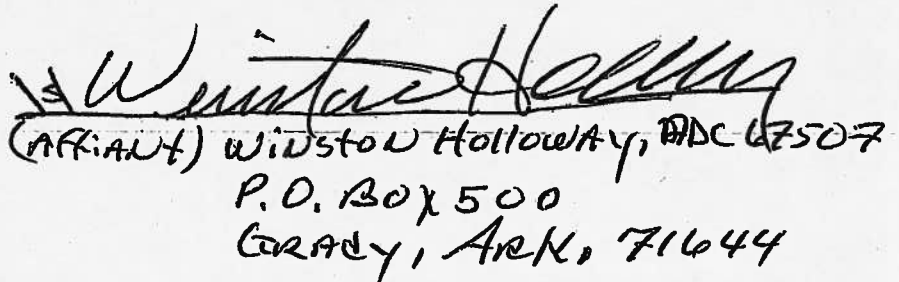 /s/ Winston Holloway
(AFFiANt) WiNstoN HollowAy, ADC 67507
P.O. BOX 500
GRADy, ARK, 71644